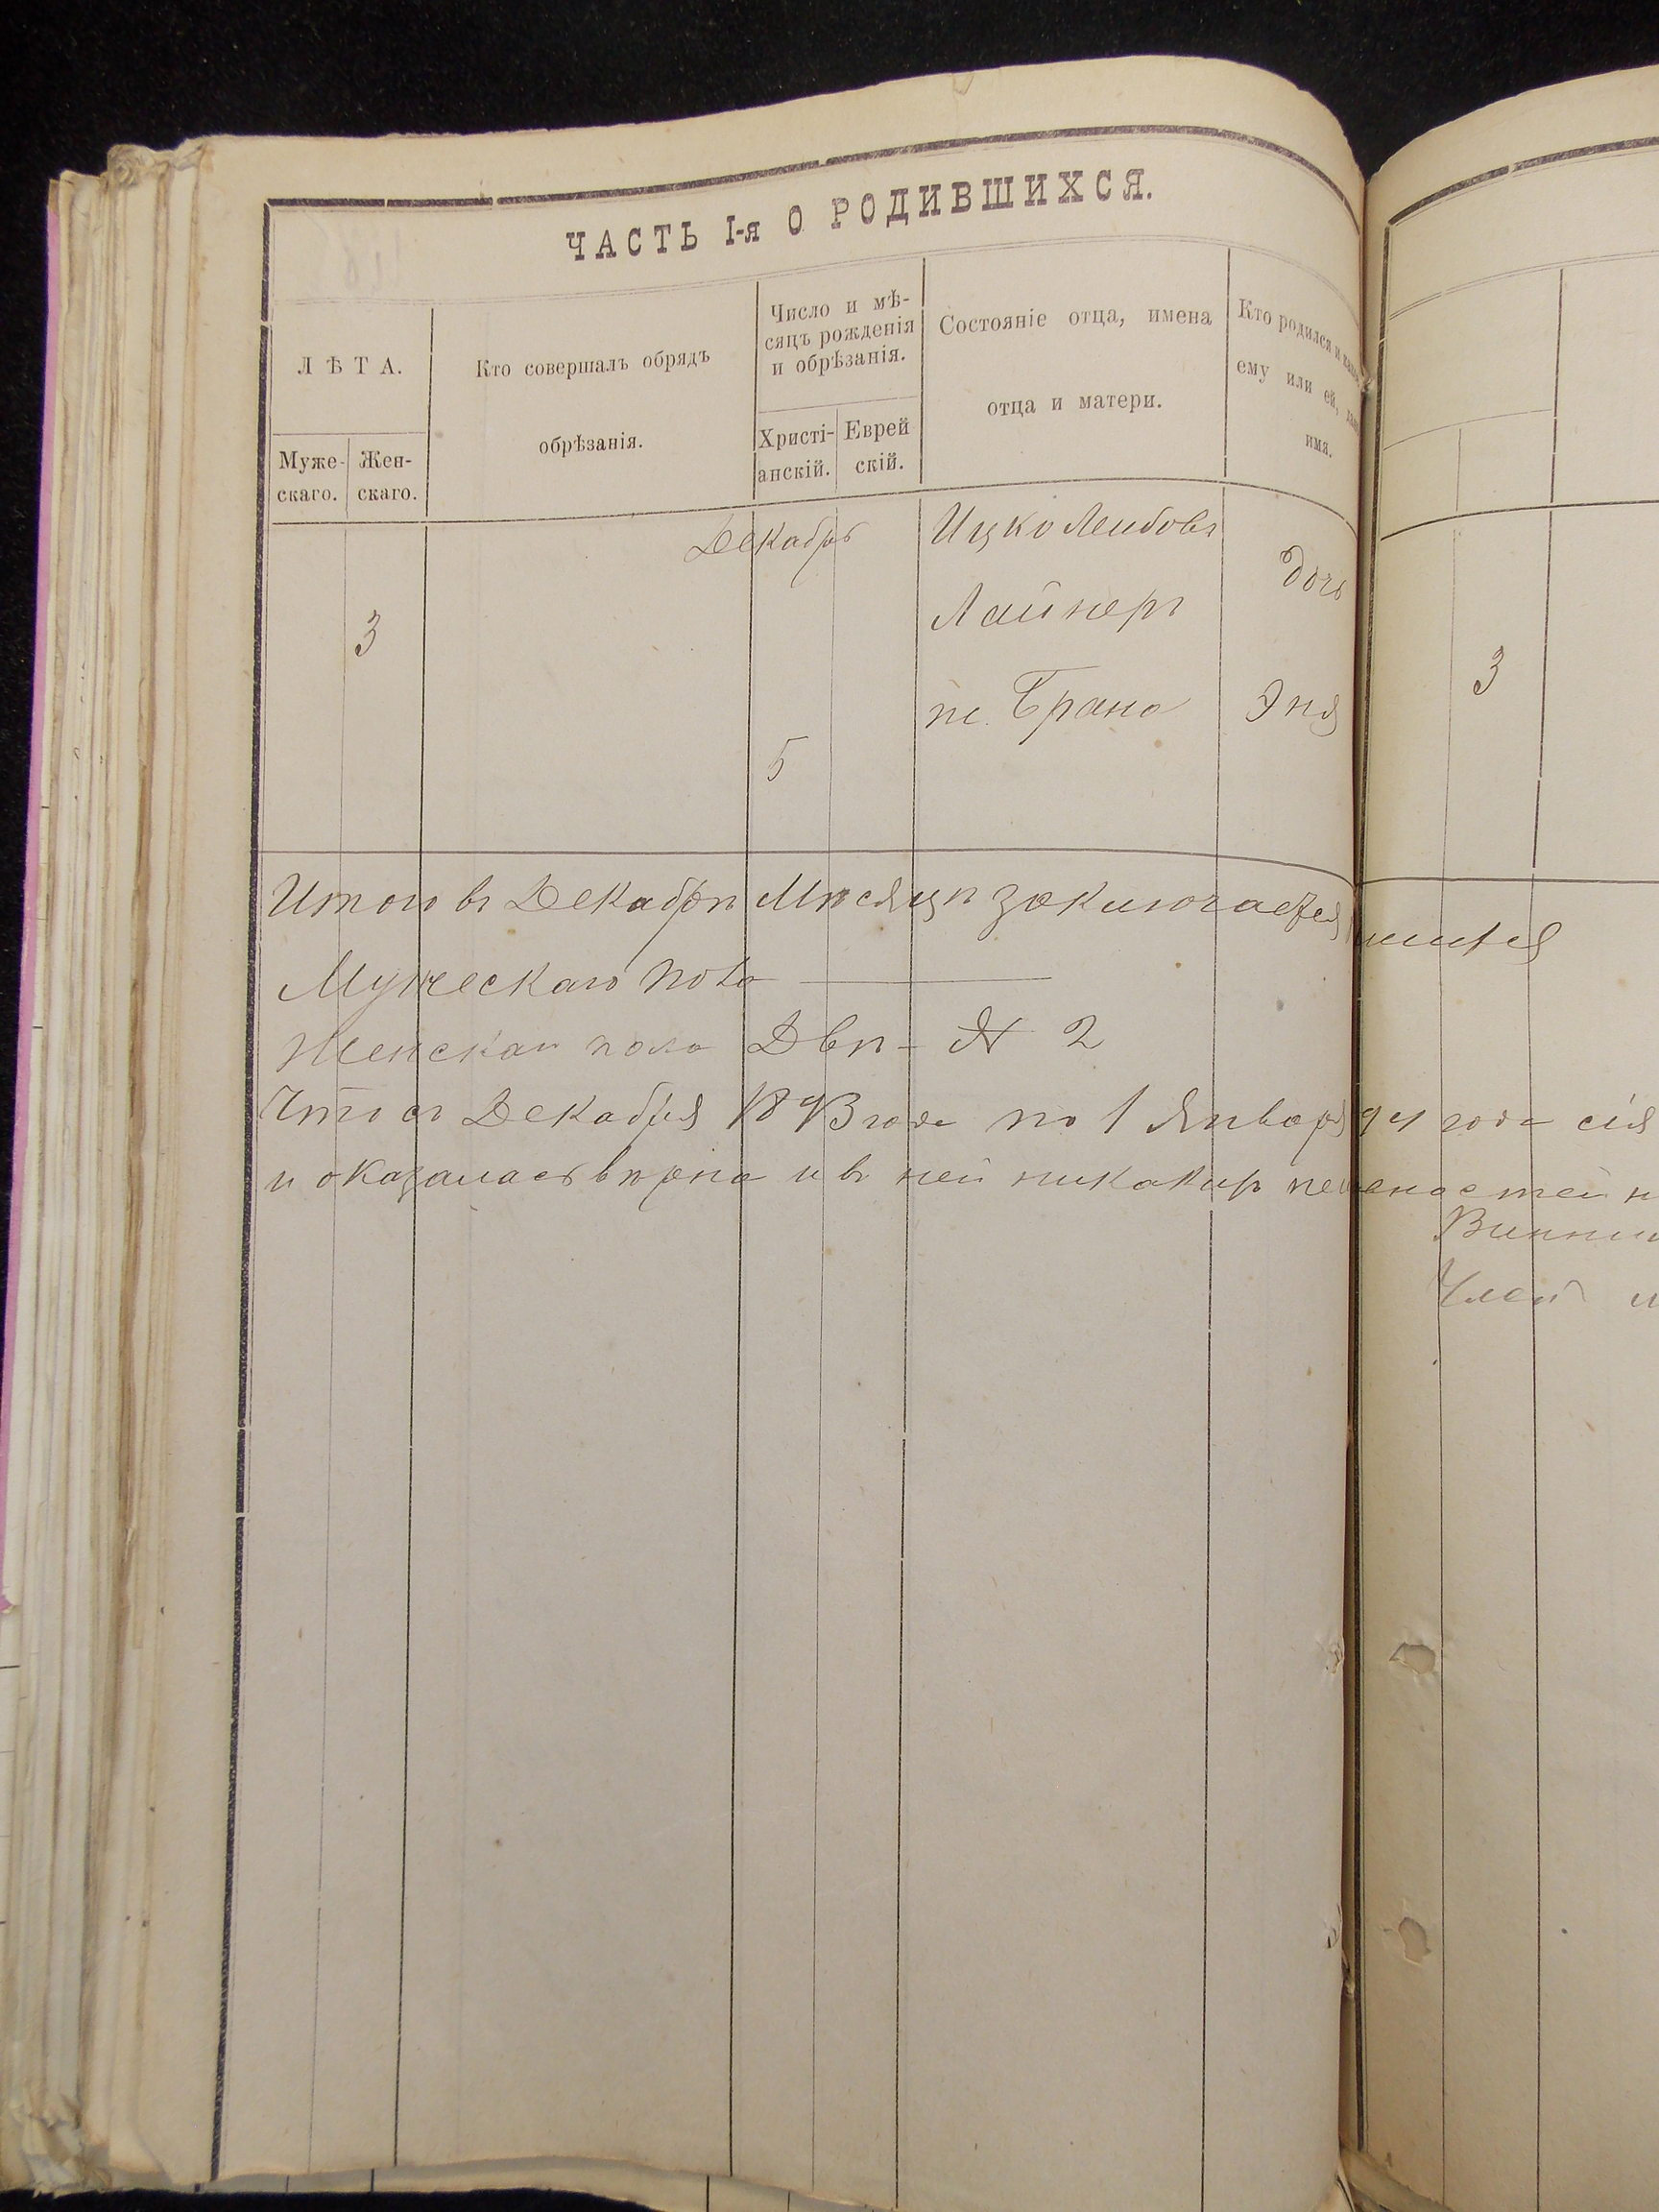 ЧАСТЬ I-я О РОДИВШИХСЯ.
ЛѢТА.
Муже-
скаго.
Жен-
скаго.
Кто совершалъ обрядъ
обрѣзанія.
Число и мѣ-
сяцъ рожденія
и обрѣзанія.
Христі-
анскій.
Еврей
скій.
Состояніе отца, имена
отца и матери.
Кто родился и какое
ему или ей, дано
имя.
Декабрь
3
5
Ицко Лейбовъ
Лайнеръ
ж. Брана
дочь
Эня
3
Итого въ Декабрѣ Мѣсяцѣ заключается
Мужескаго пола
Женскаго пола Двѣ - № 2
Что съ Декабря 1893 года по 1 Января 94 года сія
и оказалась вѣрна и въ ней никакихъ
Члей